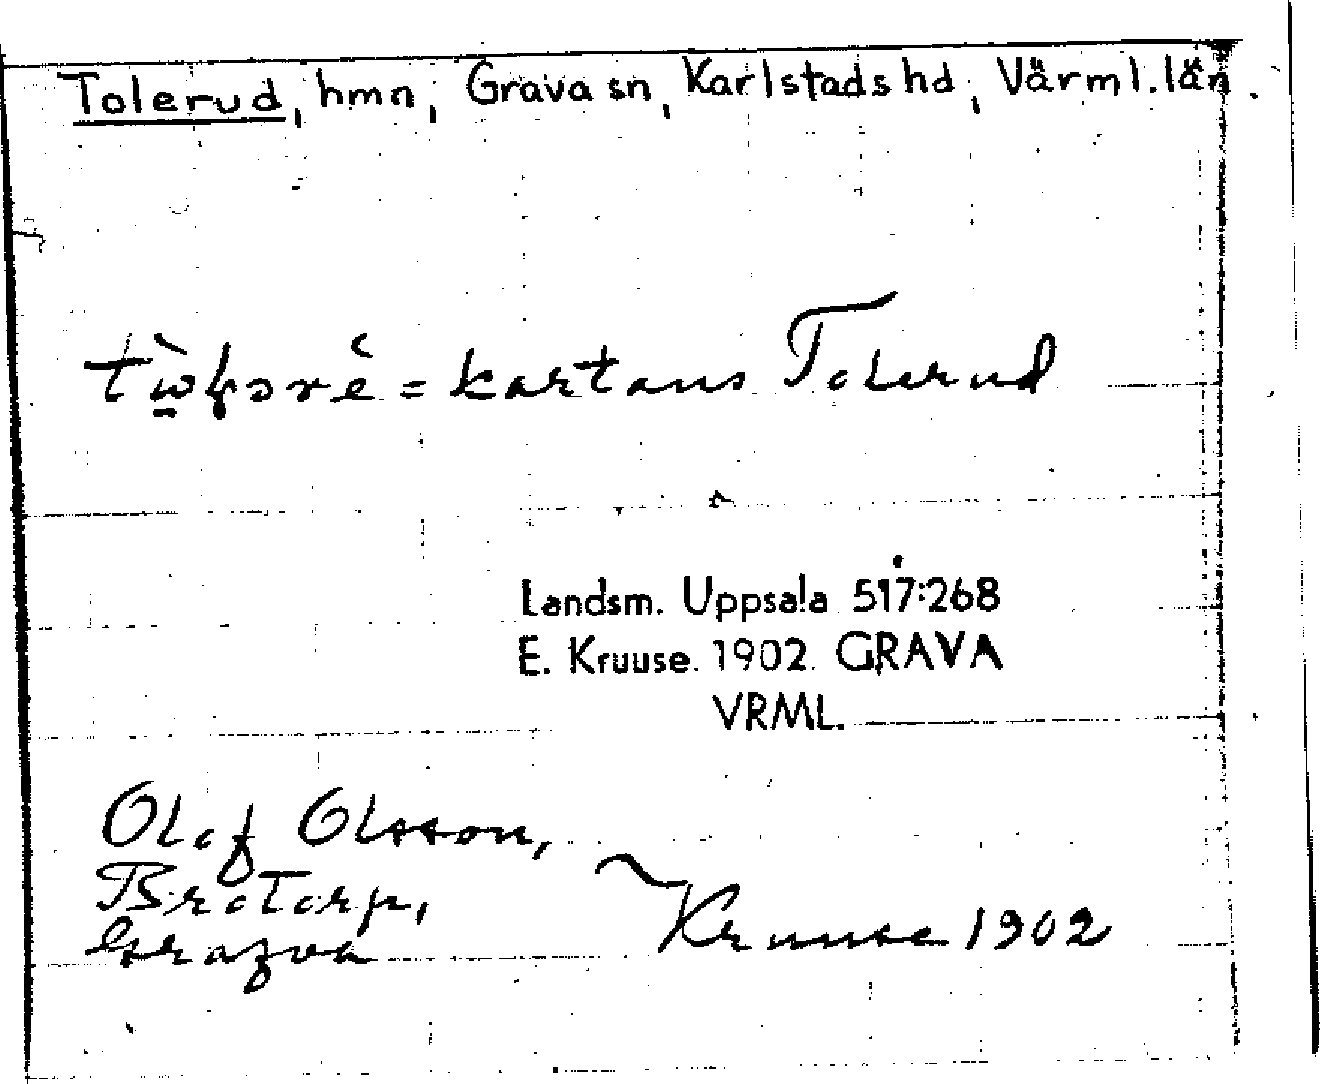 Tolerud, hmn, Grava sn, Karlstads hd, Värml. län.
= kartans Tolerud
Landsm. Uppsala 517:268
E. Kruuse. 1902. GRAVA
VRML.
Olof Olsson,
Brotorp,
Grafva
Kruuse 1902